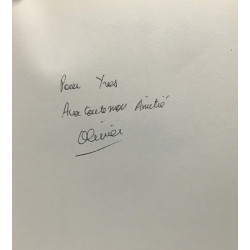 Pour Yves
Avec toute mon Amitié
Olivier